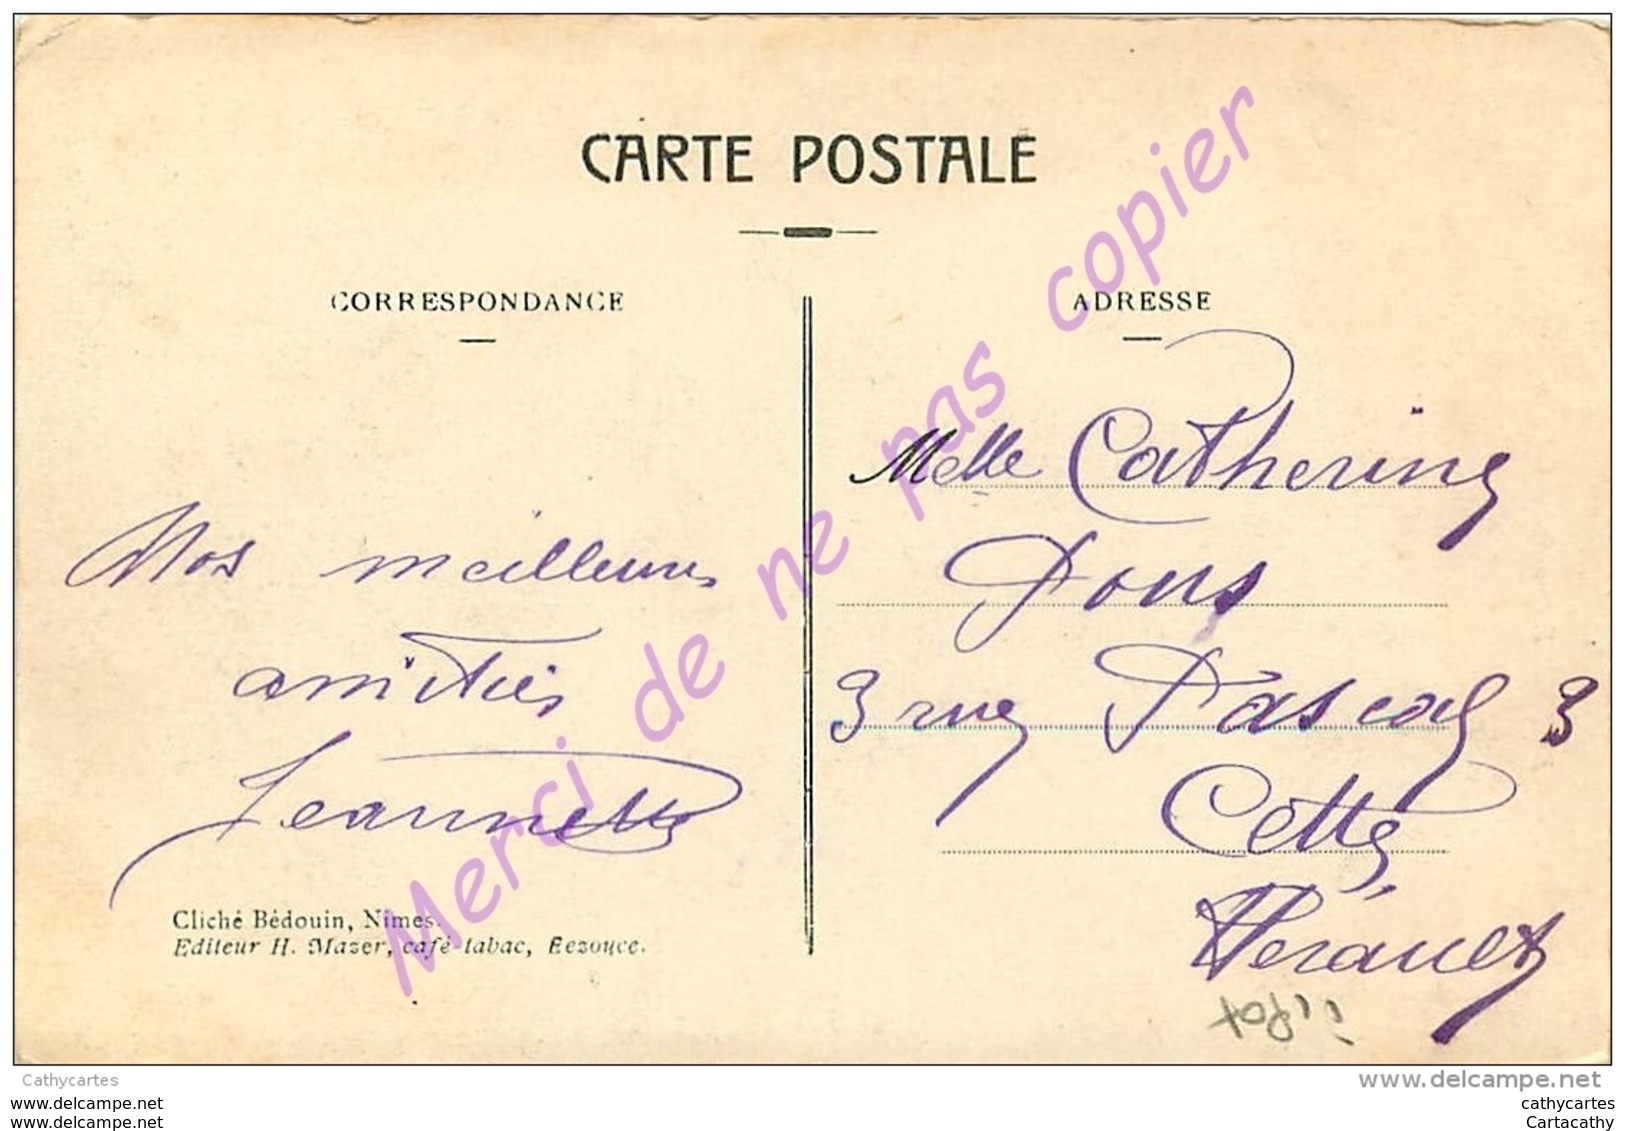 CARTE POSTALE
CORRESPONDANCE
ADRESSE
Melle Catherine
Pous
3 rue Pascal 3
Cette
Herault
Nos meilleures
amitiés
Jeannette
Cliché Bédouin, Nimes.
Editeur H. Mazer, café-tabac, Bezouce.
Merci de ne pas copier
Cathycartes
www.delcampe.net
www.delcampe.net
www.delcampe.net
cathycartes
Cartacathy